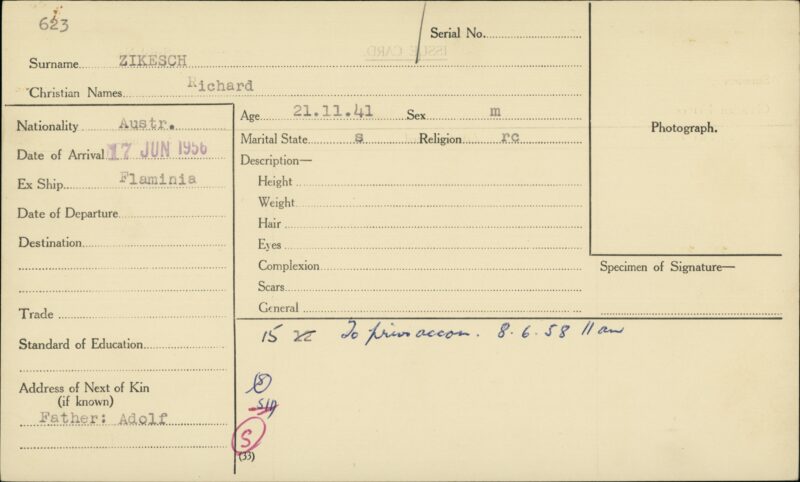 623
Serial No.
Surname ZIKESCH
Christian Names Richard
Nationality Austr.
Date of Arrival 17 JUN 1956
Ex Ship Flaminia
Date of Departure
Destination
Trade
Standard of Education
Address of Next of Kin
(if known)
Father: Adolf
Age 21.11.41 Sex m
Marital State s Religion rc
Description—
Height
Weight
Hair
Eyes
Complexion
Scars
General
Photograph.
Specimen of Signature—
15 To priv accom. 8.6.58 11 am
(8)
S
(33)